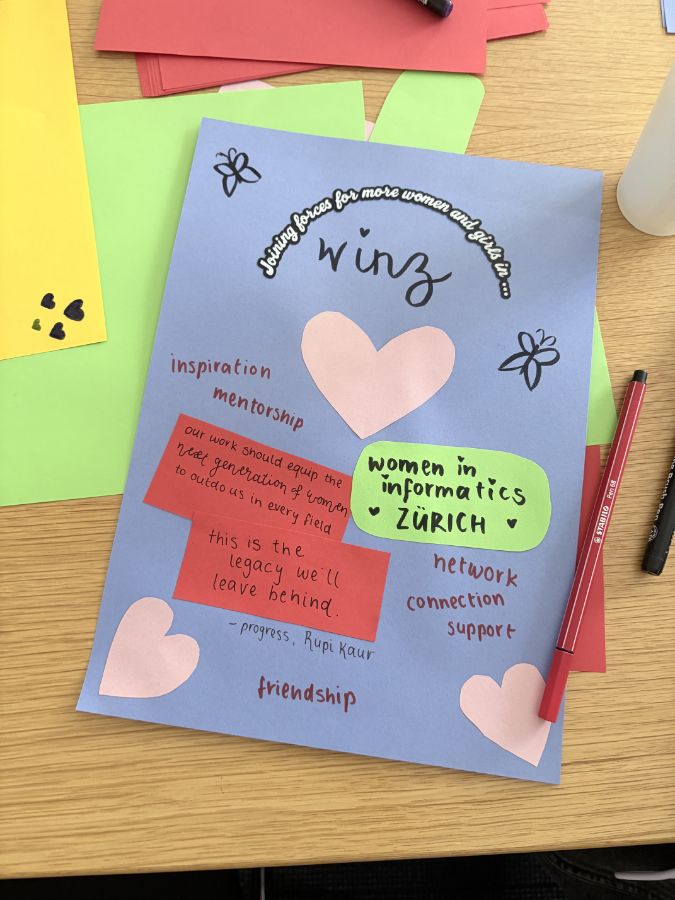 Joining forces for more women and girls in ...
winz
inspiration
mentorship
our work should equip the
next generation of women
to outdo us in every field
this is the
legacy we'll
leave behind.
- progress, Rupi Kaur
women in
informatics
ZÜRICH
network
connection
support
friendship
STABILO Pen 68